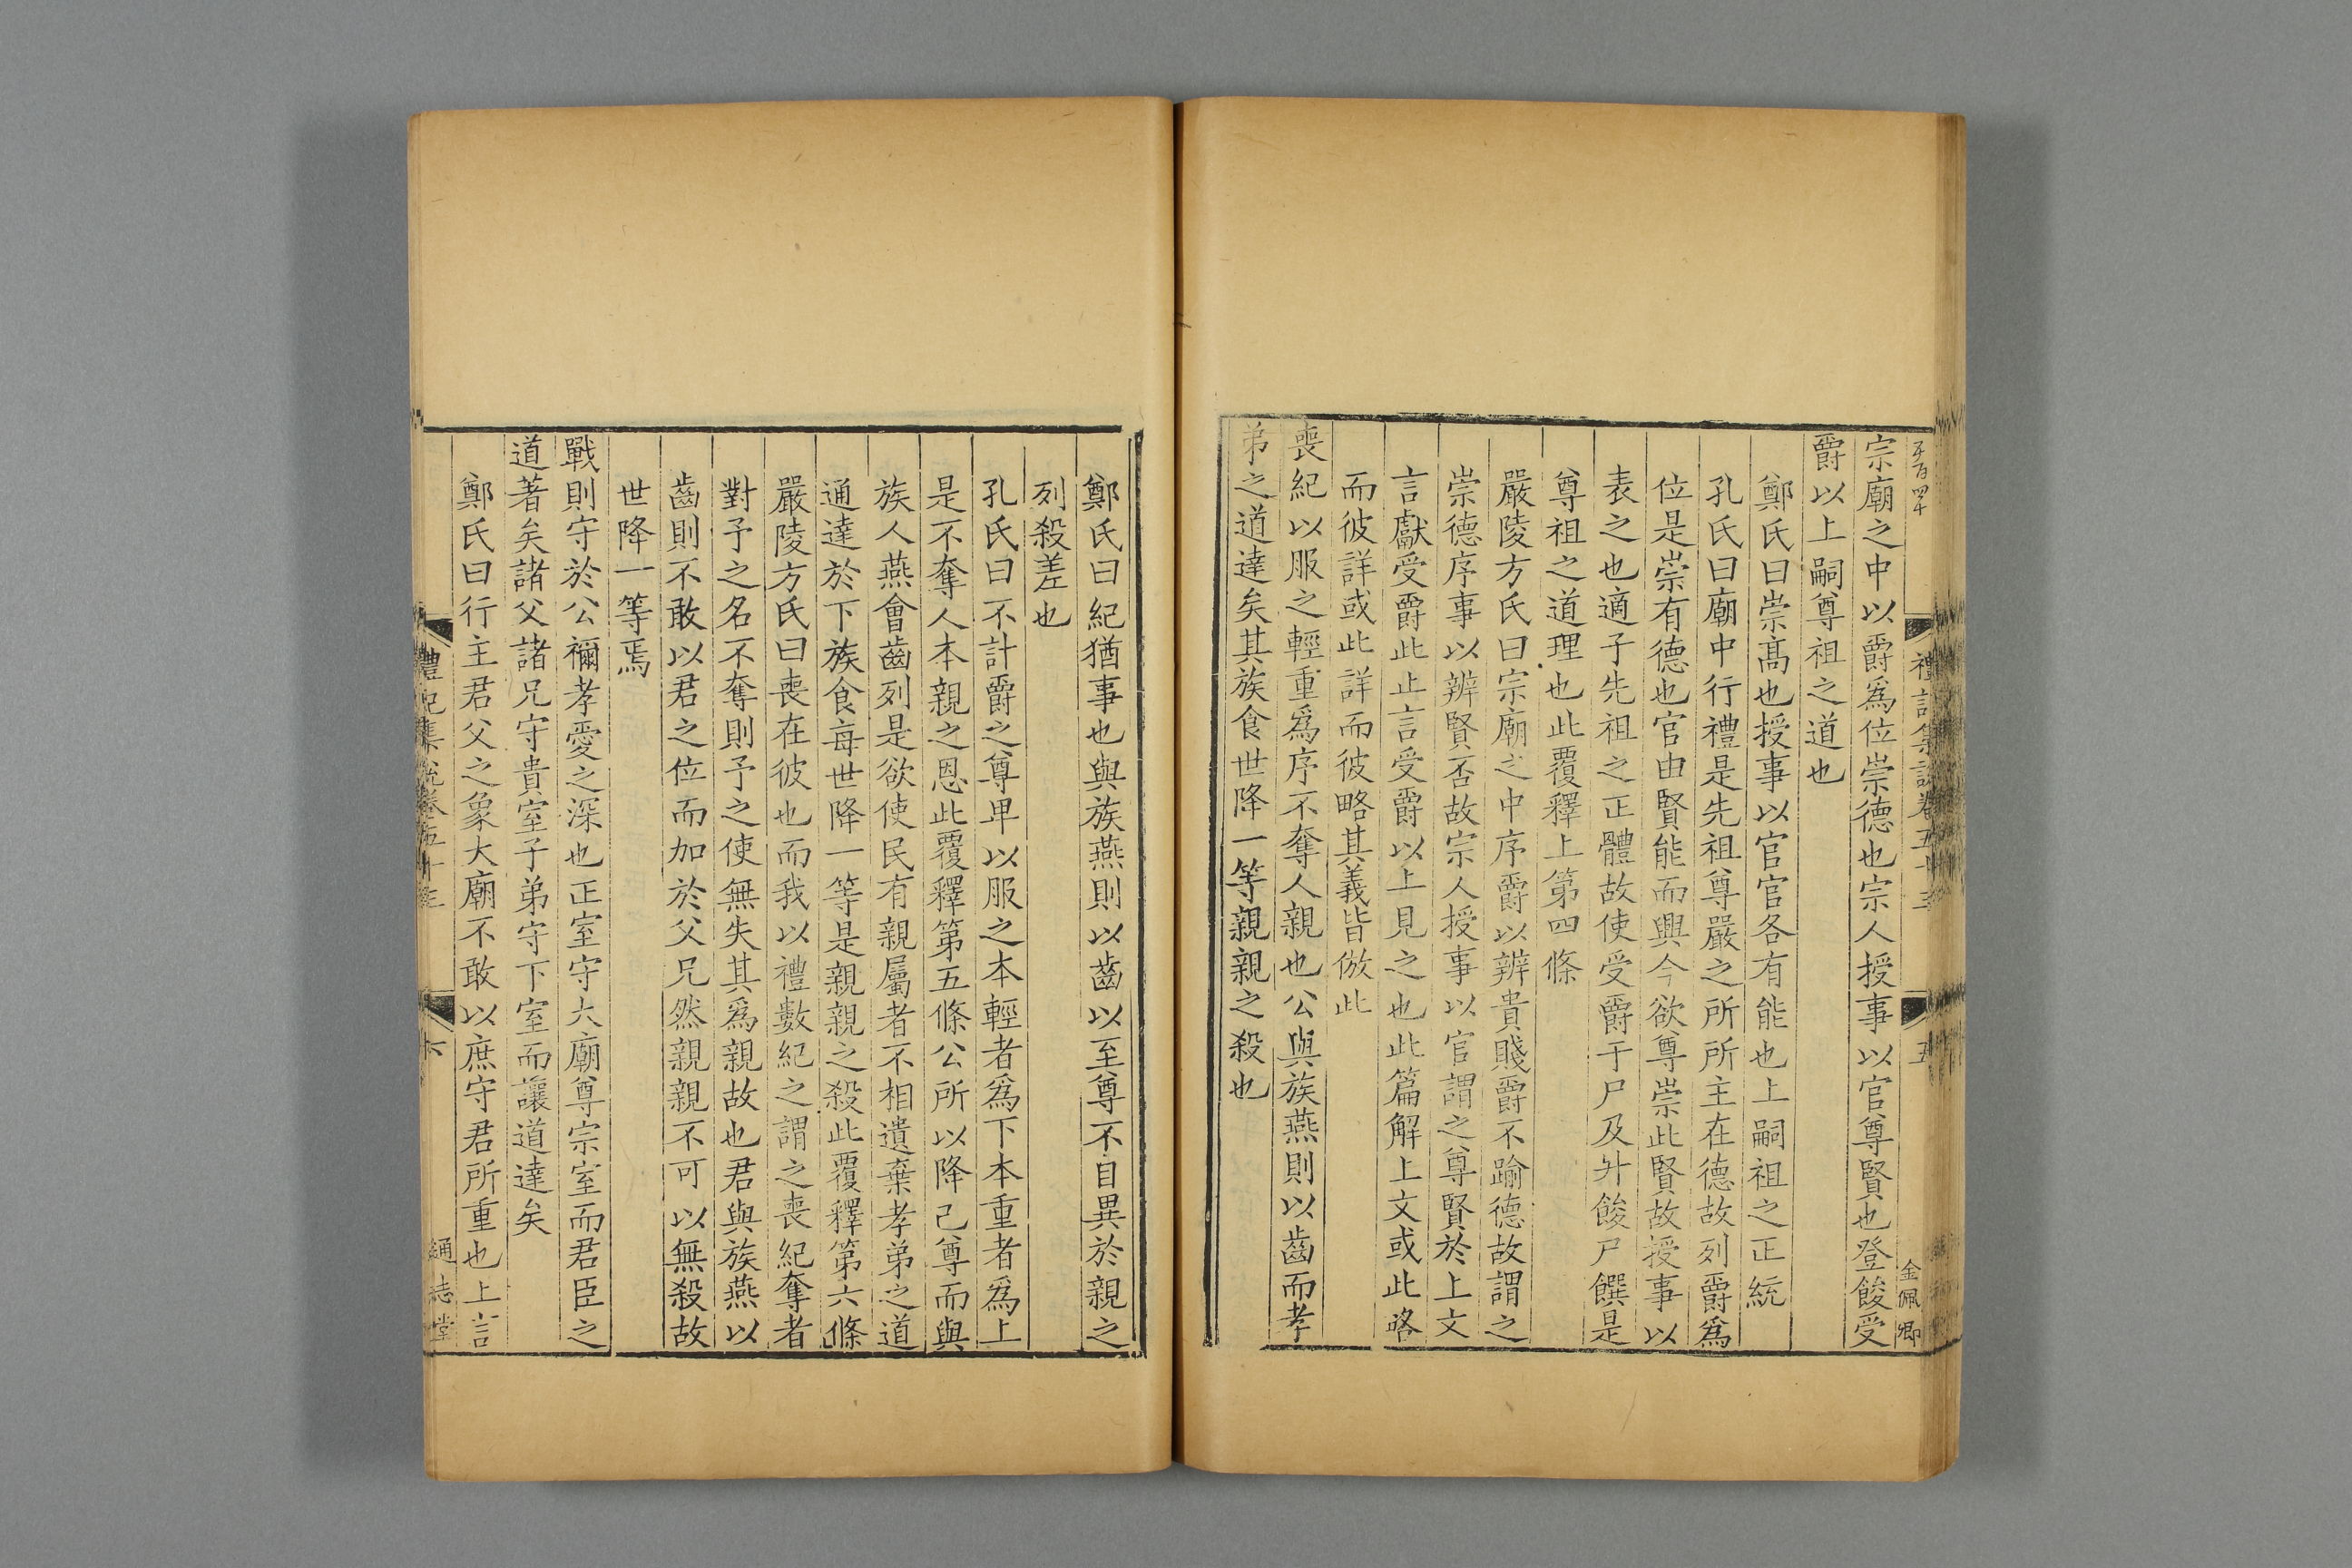 宗廟之中以爵爲位崇德也宗人授事以官尊賢也登餕受
爵以上嗣尊祖之道也
鄭氏曰崇髙也授事以官官各有能也上嗣祖之正統
孔氏曰廟中行禮是先祖尊嚴之所所主在德故列爵爲
位是崇有德也官由賢能而興今欲尊崇此賢故授事以
表之也適子先祖之正體故使受爵于尸及升餕尸饌是
尊祖之道理也此覆釋上第四條
嚴陵方氏曰宗廟之中序爵以辨貴賤爵不踰德故謂之
崇德序事以辨賢否故宗人授事以官謂之尊賢於上文
言獻受爵此止言受爵以上見之也此篇解上文或此略
而彼詳或此詳而彼略其義皆倣此
喪紀以服之輕重爲序不奪人親也公與族燕則以齒而孝
弟之道達矣其族食世降一等親親之殺也
金佩卿
鄭氏曰紀猶事也與族燕則以齒以至尊不自異於親之
列殺差也
孔氏曰不計爵之尊卑以服之本輕者爲下本重者爲上
是不奪人本親之恩此覆釋第五條公所以降己尊而與
族人燕會齒列是欲使民有親屬者不相遺棄孝弟之道
通達於下族食每世降一等是親親之殺此覆釋第六條
嚴陵方氏曰喪在彼也而我以禮數紀之謂之喪紀奪者
對予之名不奪則予之使無失其爲親故也君與族燕以
齒則不敢以君之位而加於父兄然親親不可以無殺故
世降一等焉
戰則守於公禰孝愛之深也正室守大廟尊宗室而君臣之
道著矣諸父諸兄守貴室子弟守下室而讓道達矣
鄭氏曰行主君父之象大廟不敢以庶守君所重也上言
禮記集說卷五十三
六
通志堂